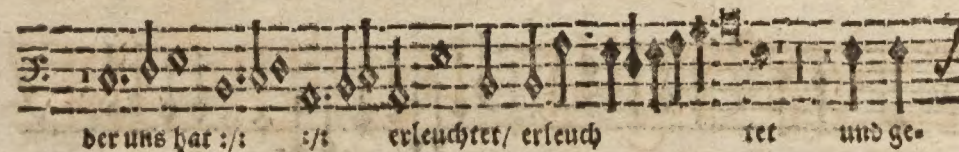 der uns hat :/: :/: erleuchtet/ erleuch tet und ge-